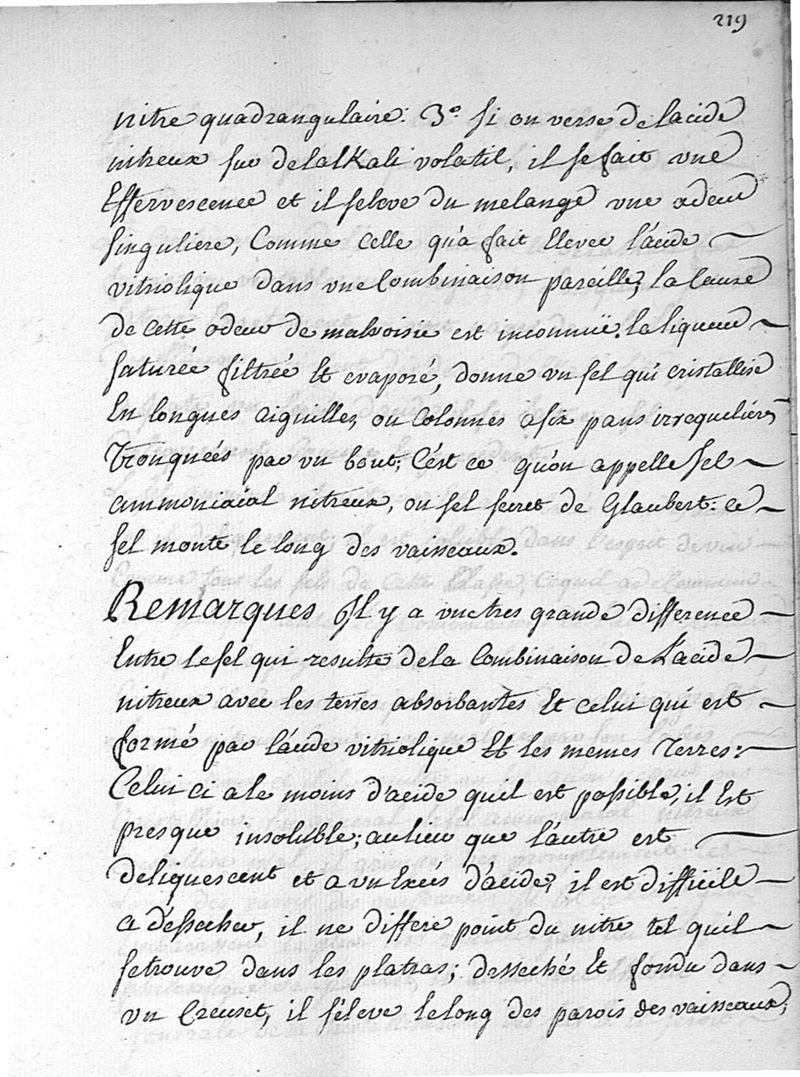 219
nitre quadrangulaire. 3.° si on verse de lacide
nitreux sur de lalKali volatil, il se fait une
Effervescence et il seleve du melange une odeur
singuliere, Comme Celle qu'a fait Elever l'acide
vitriolique dans une Combinaison pareille, la Cause
de cette odeur de malvoisie est inconnuë. la liqueur
saturée filtrée Et evaporé, donne un sel qui cristallise
En longues aiguilles, ou Colonnes a six pans irreguliéres
Tronqueés par un bout; C'est ce qu'on appelle sel
ammoniacal nitreux, ou sel secret de Glaubert. ce
sel monte le long des vaisseaux.
Remarques Il y a une tres grande difference
Entre le sel qui resulte de la Combinaison de L'acide
nitreux avec les terres absorbantes Et Celui qui est
formé par l'acide vitriolique Et les memes Terres:
Celui ci a le moins d'acide quil est possible, il Est
presque insoluble; au lieu que l'autre est
deliquescent et a un Excés d'acide, il est difficile
a déssecher, il ne differe point du nitre tel quil
se trouve dans les platras; desseché Et fondu dans
un Creuset, il s'éleve le long des parois des vaisseaux;